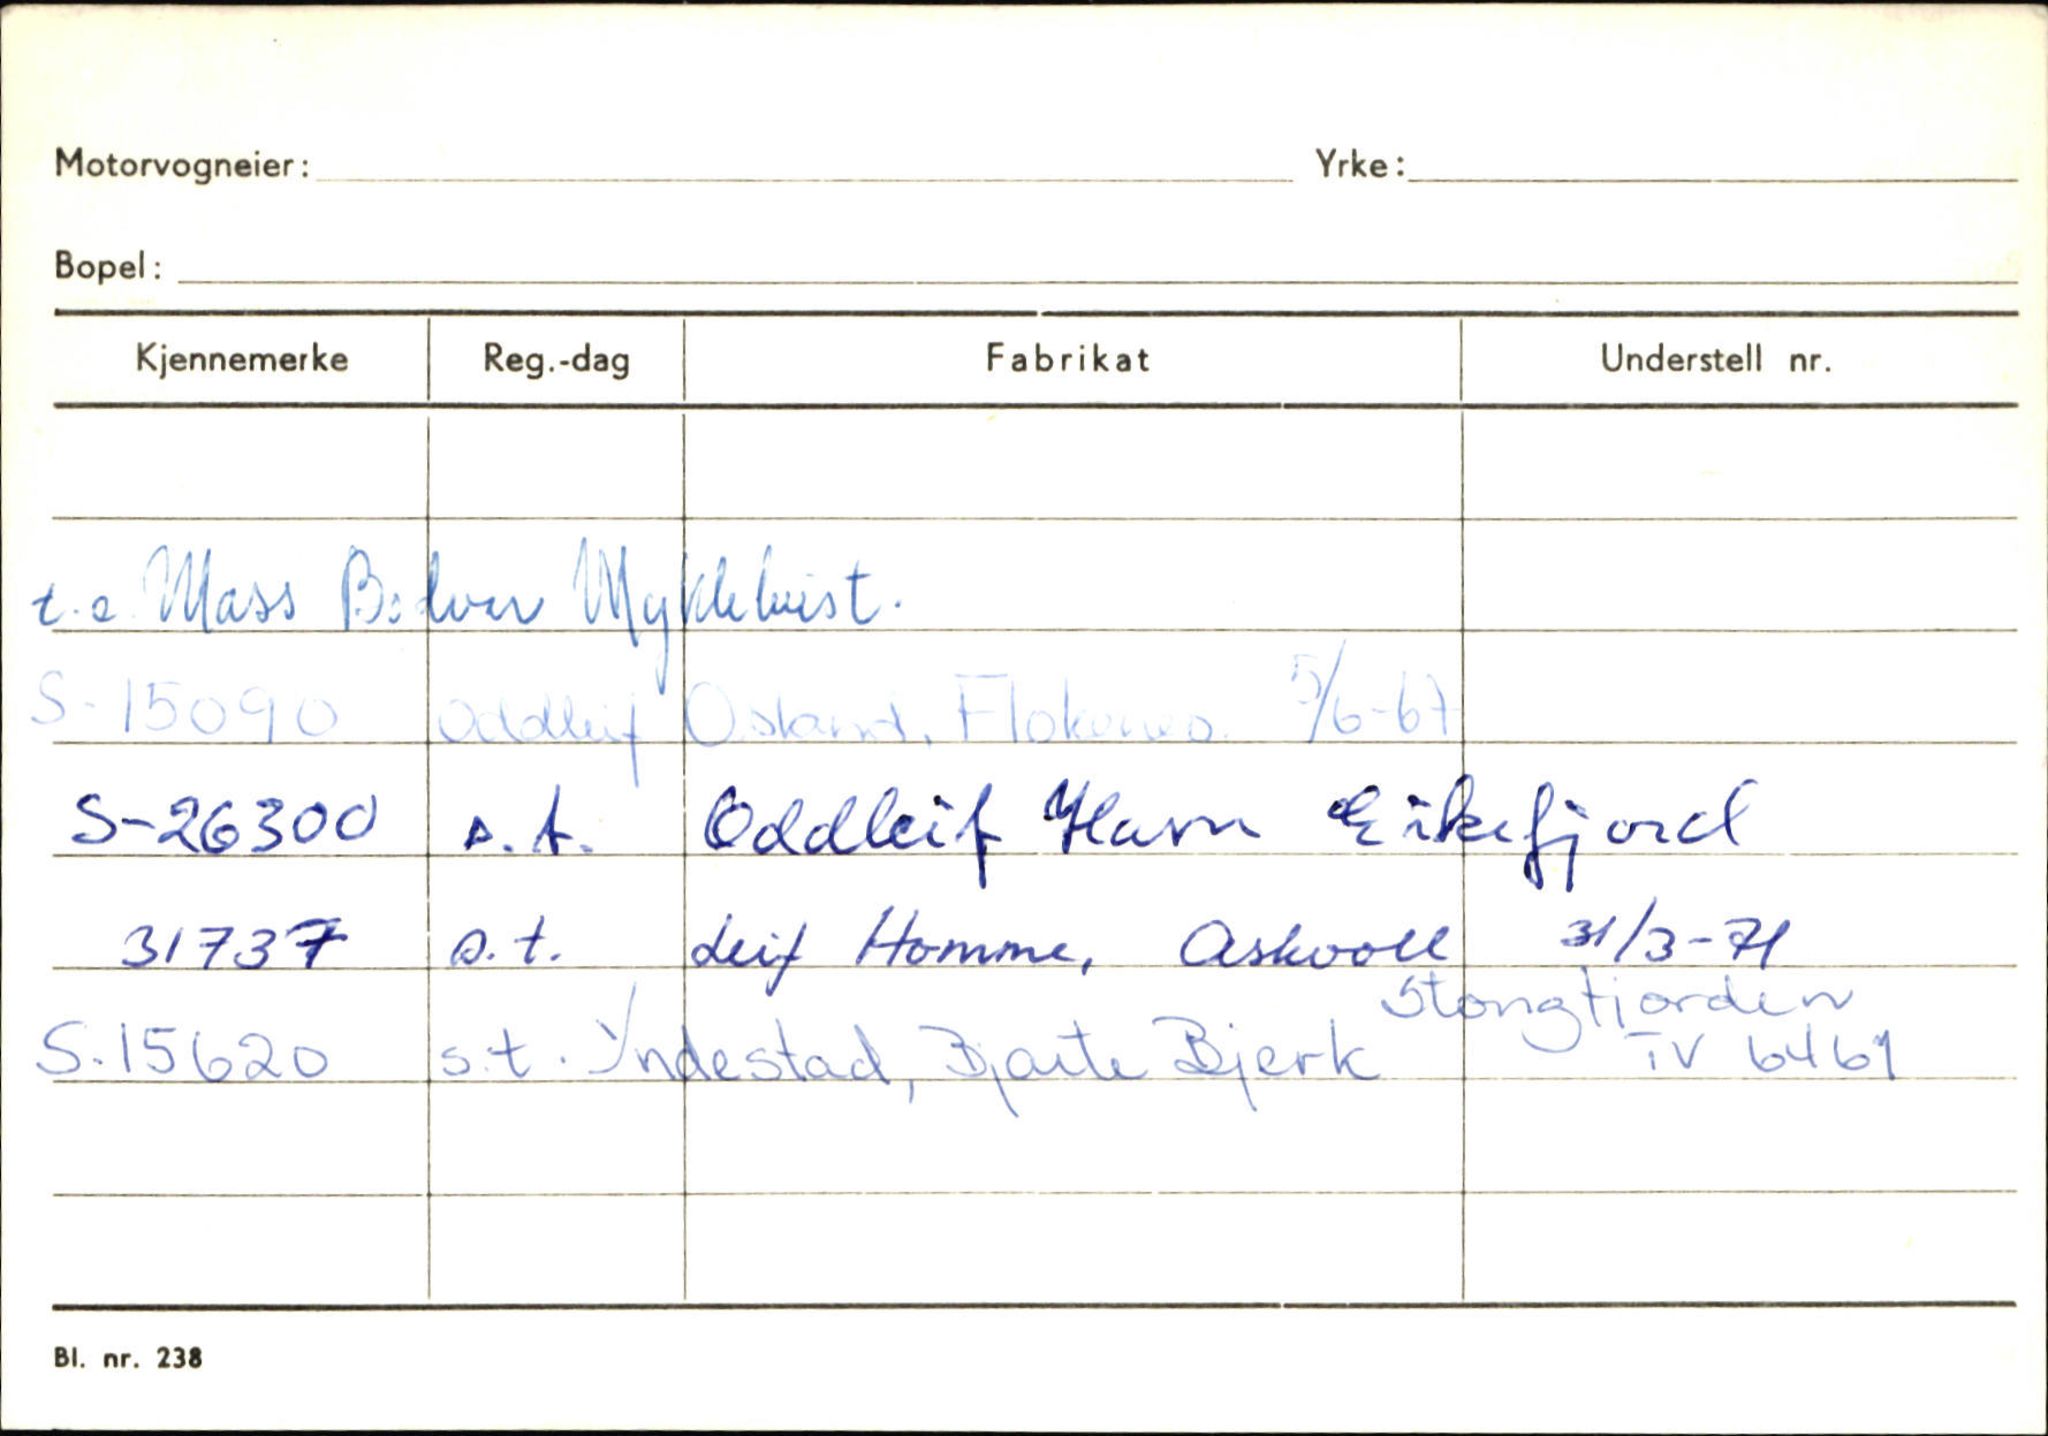 Motorvogneier: Yrke:
Bopel:
Kjennemerke Reg.-dag Fabrikat Understell nr.
Mass Bodvar Myklebust.
S-15090 Oddleif Osland, Flokenes. 5/6-67
S-26300 s.t. Oddleif Havn Eikefjord
31737 s.t. Leif Homme, Askvoll 31/3-71
Stongfjorden
S.15620 s.t. Yndestad, Bjarte Bjerk TV 6461
Bl. nr. 238